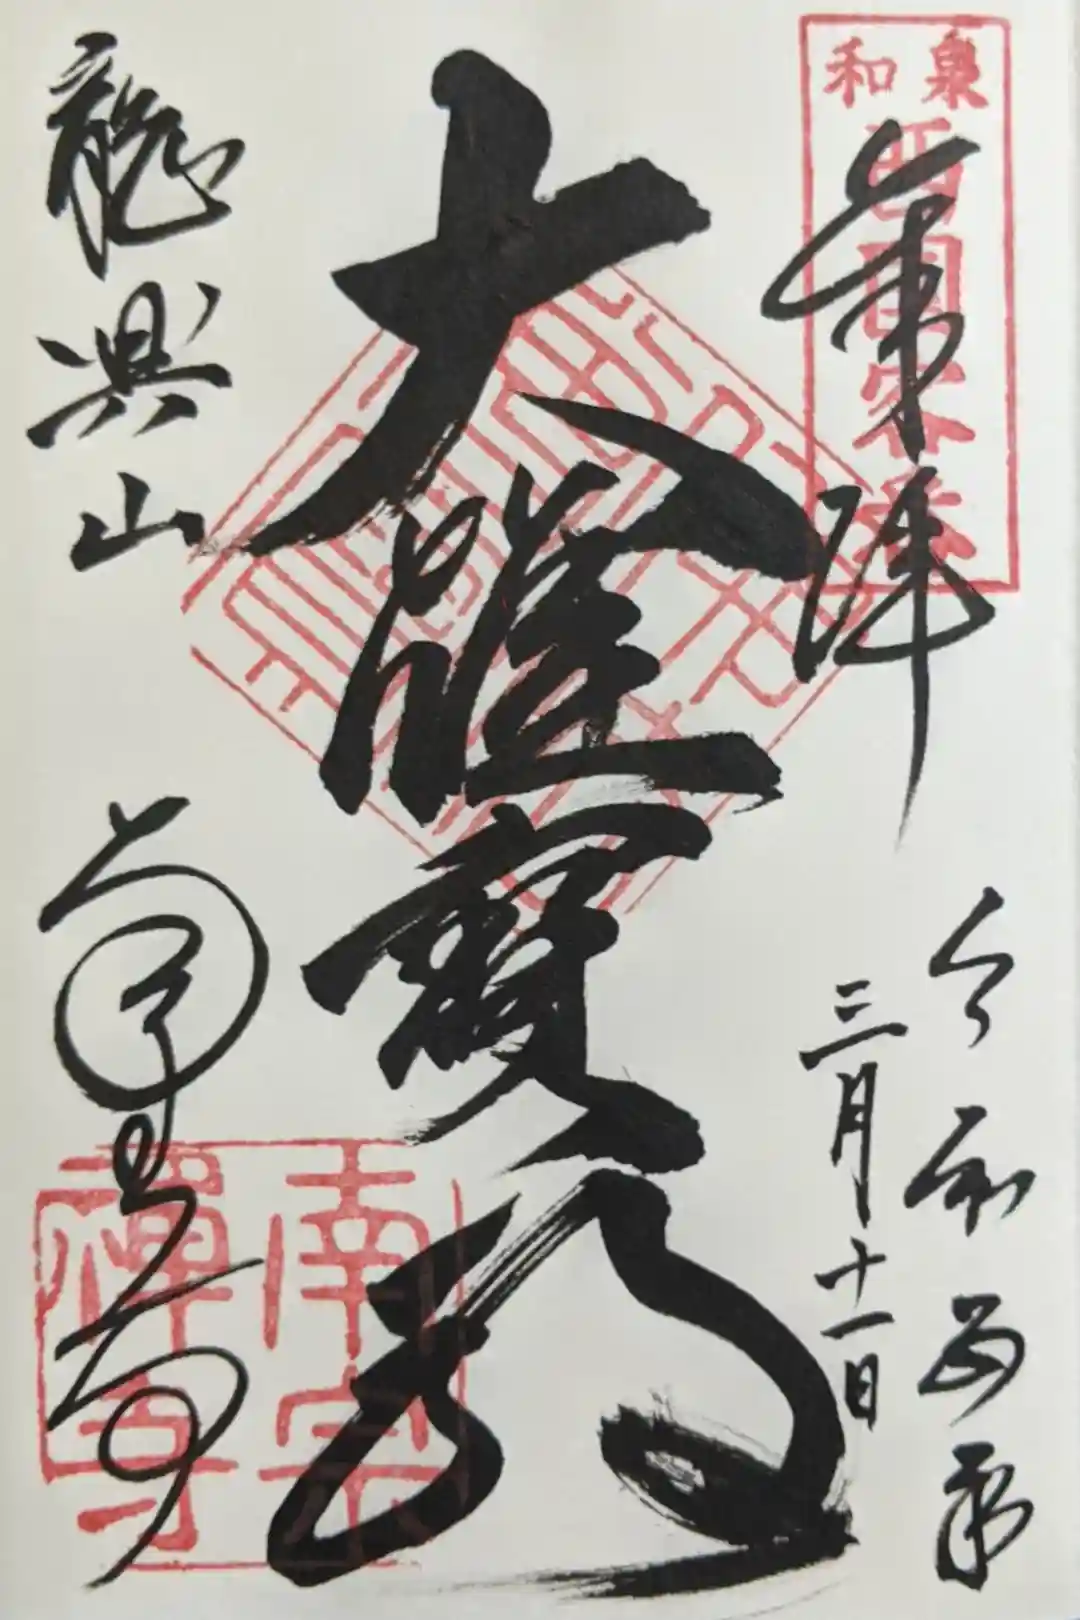 和泉
西国客番
奉拝
令和 年
三月十一日
大雄寶殿
龍興山
南宗寺
南宗
禪寺